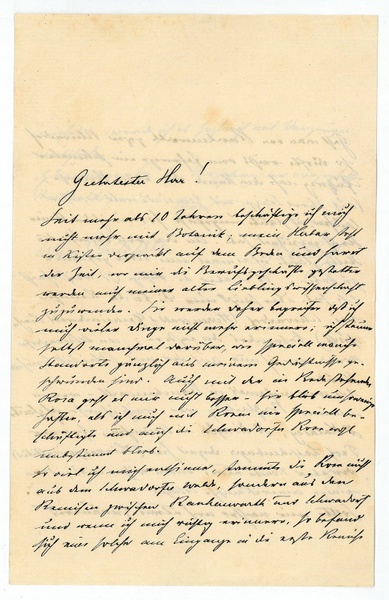 Geehrtester Herr!
Seit mehr als 10 Jahren beschäftige ich mich
nicht mehr mit Botanik; mein Herbar steht
in Kisten verpackt auf dem Boden und harrt
der Zeit, wo mir die Berufsgeschäfte gestatten
werden mich meiner alten Lieblingswissenschaft
zuzuwenden. Sie werden daher begreifen daß ich
mich vieler Dinge nicht mehr erinnere; ich staune
selbst manchmal darüber, wie speciell manche
Standorte gänzlich aus meinem Gedächtnisse ge-
schwunden sind. Auch mit der in Rede stehenden
Rosa geht es mir nicht besser. Sie blieb um so
, als ich mich mit Rosen nie speciell be-
schäftigte und auch die Schwadorfer Rose
unbestimmt blieb.
So viel ich mich entsinne, stammte die Rose nicht
aus dem Schwadorfer Walde, sondern aus den
Remisen zwischen Rauhenwarth und Schwadorf
und wenn ich mich richtig erinnere, so befand
sich eine solche am Eingange in die erste Remise